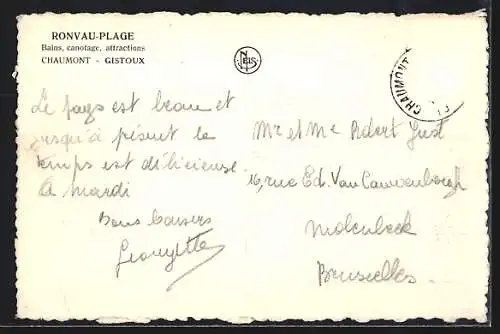 RONVAU-PLAGE
Bains, canotage, attractions
CHAUMONT - GISTOUX
NELS
CHAUMONT
Le pays est beau et
jusqu'à présent le
temps est délicieuse
A mardi
Bons baisers
Georgette
Mr et Me Robert Just
16, rue Ed. Van Cauwenbergh
Molenbeek
Bruxelles.